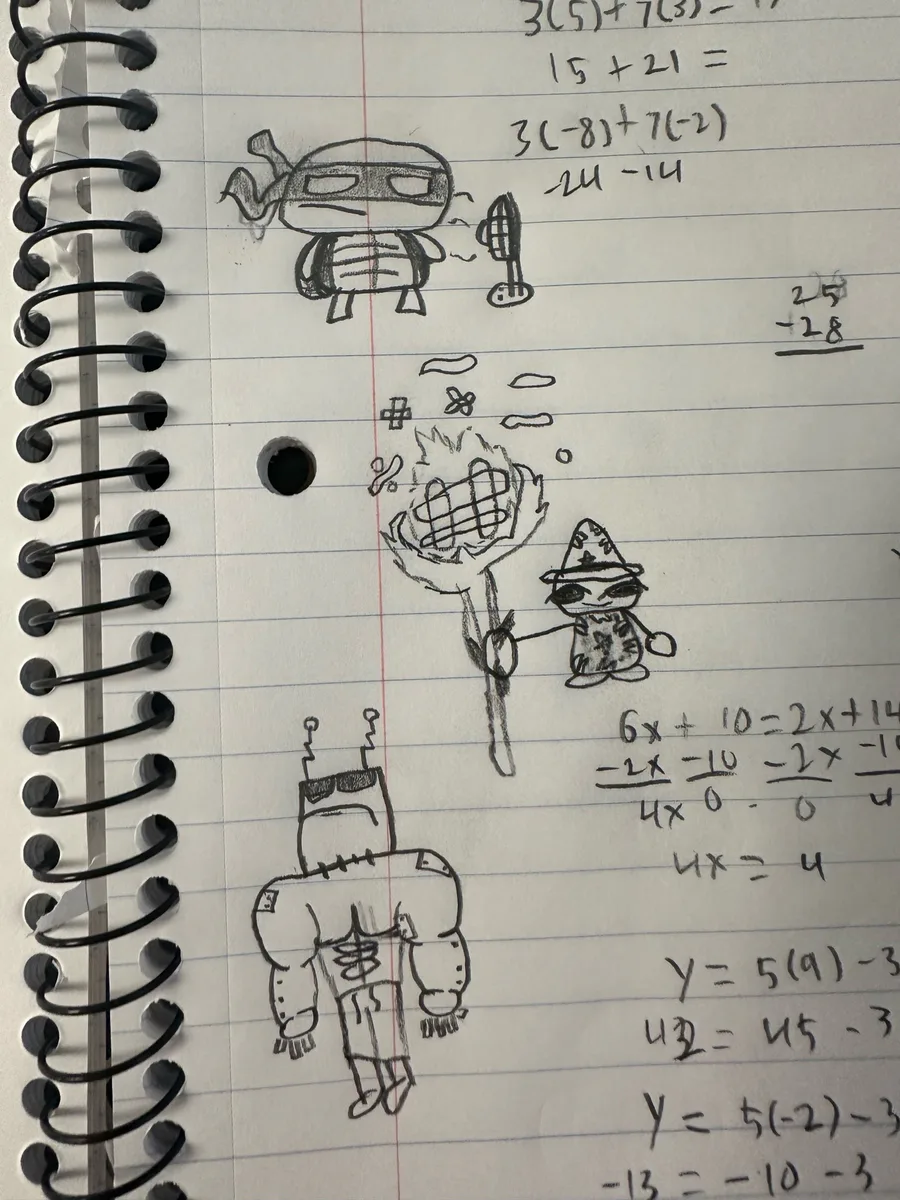 3(5)+7(3)=
15+21=
3(-8)+7(-2)
-24-14
25
-28
6x+10=2x+14
-2x -10 -2x -10
4x 0 0 4
4x=4
y=5(9)-3
42=45-3
y=5(-2)-3
-13=-10-3